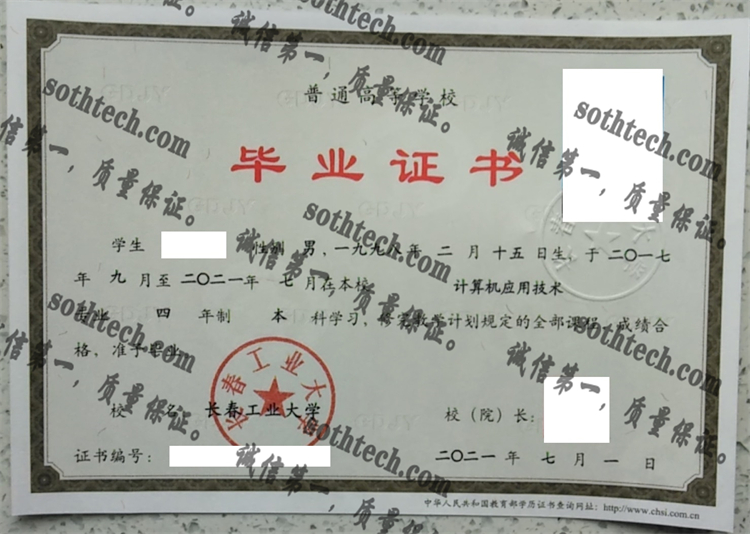 普通高等学校
毕业证书
学生 性别 男，一九九八年 二 月 十五 日生，于 二〇一七
年 九 月至 二〇二一年 七 月在本校 计算机应用技术
专业 四 年制 本 科学习，修完教学计划规定的全部课程，成绩合
格，准予毕业。
校 名：长春工业大学
校（院）长：
证书编号：
二〇二一 年 七 月 一 日
中华人民共和国教育部学历证书查询网址：http://www.chsi.com.cn
长春工业大学
sothtech.com
诚信第一，质量保证。
sothtech.com
诚信第一，质量保证。
sothtech.com
诚信第一，质量保证。
sothtech.com
诚信第一，质量保证。
sothtech.com
诚信第一，质量保证。
sothtech.com
诚信第一，质量保证。
sothtech.com
诚信第一，质量保证。